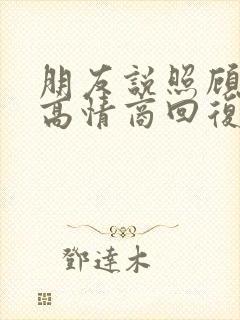 朋友說照顧
高情商回復
鄧達木